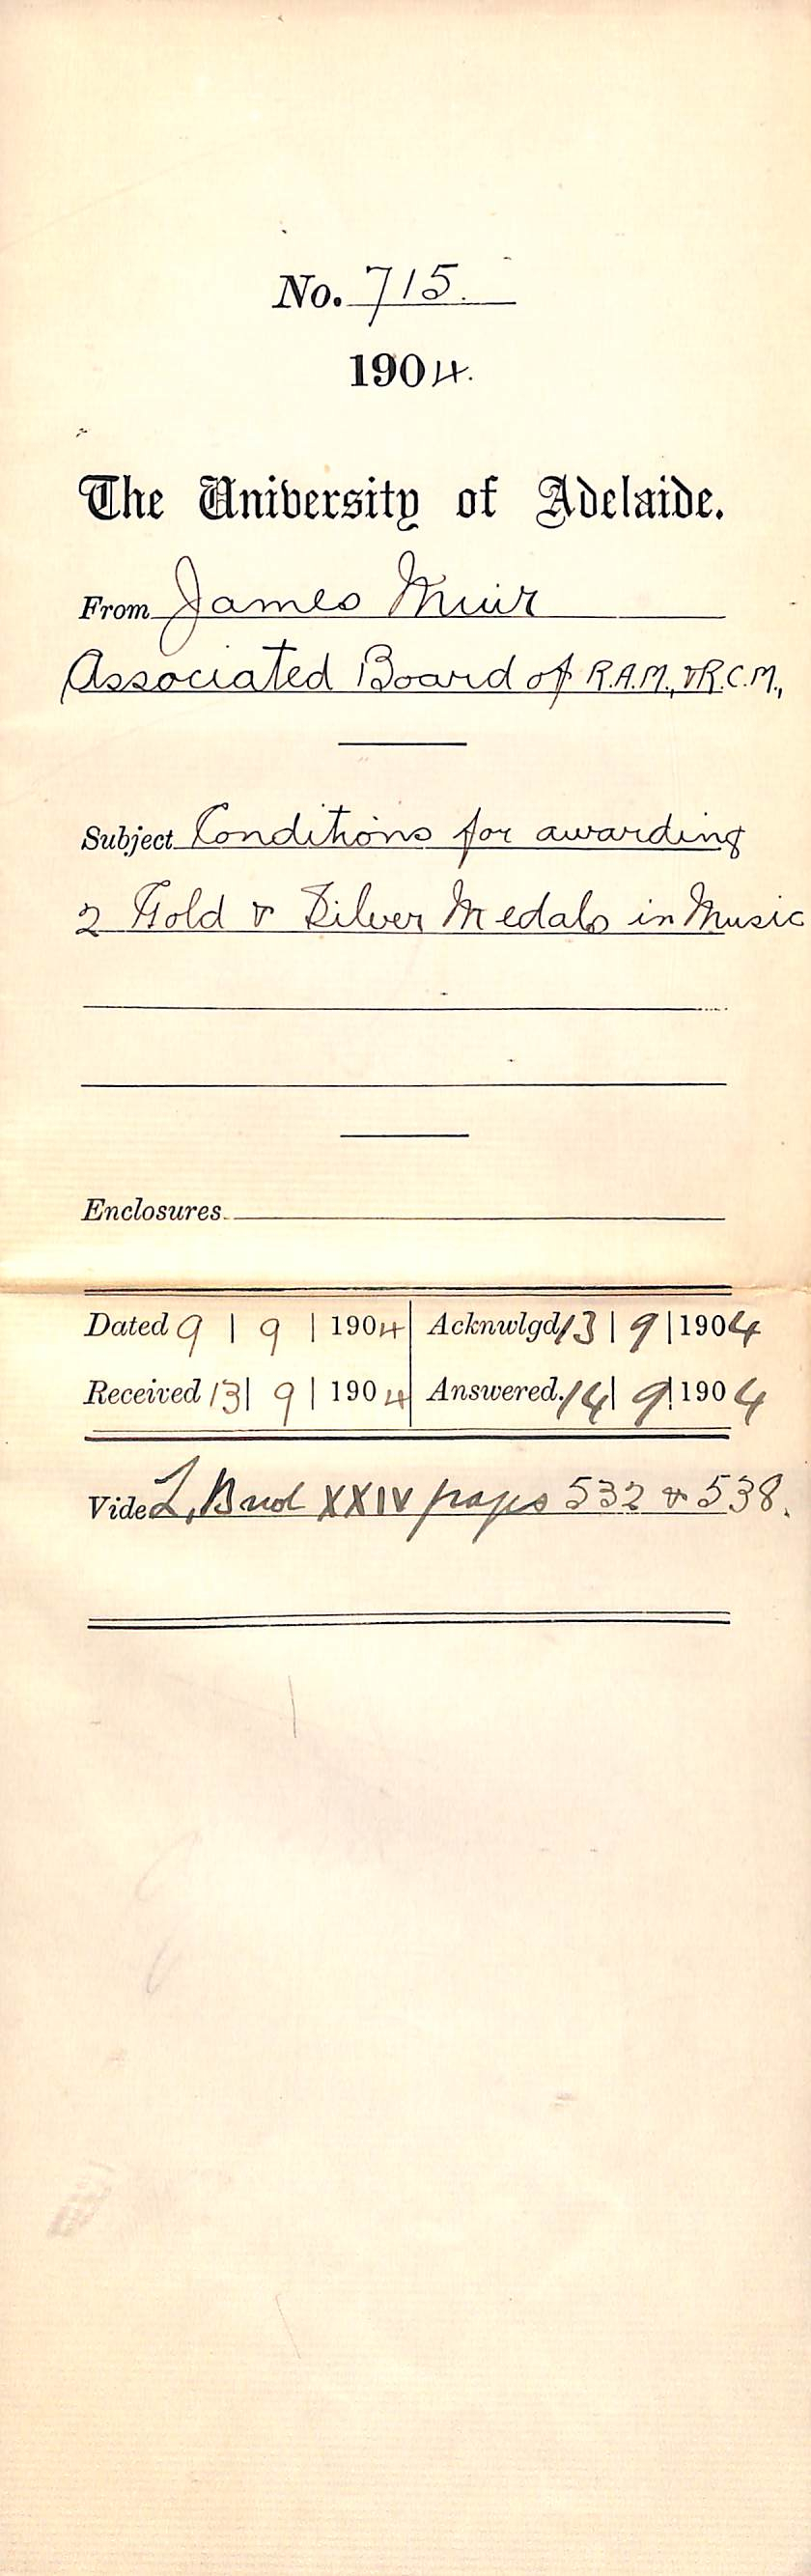 No. 715.
1904.
The University of Adelaide.
From James Muir
Associated Board of R.A.M., & R.C.M.,
Subject Conditions for awarding
2 Gold & Silver Medals in Music
Enclosures
Dated 9 | 9 | 1904 Acknwlgd 13 | 9 | 1904
Received 13 | 9 | 1904 Answered. 14 | 9 | 1904
Vide L. XXIV pages 532 & 538.